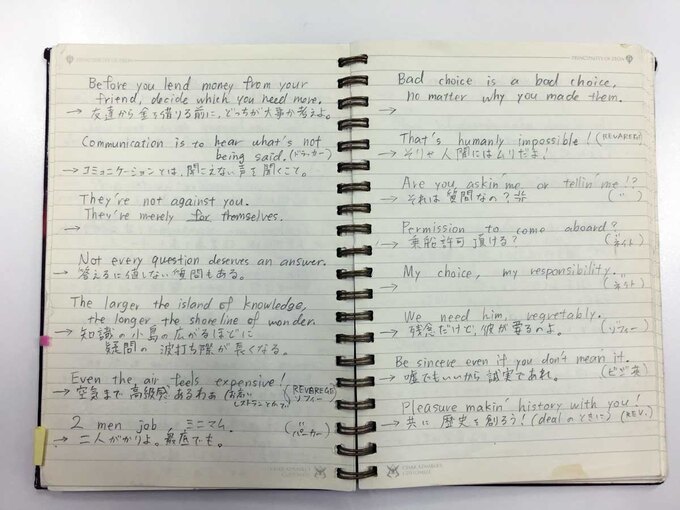 PRINCIPALITY OF ZEON
Before you lend money from your
friend, decide which you need more.
→ 友達から金を借りる前に、どっちが大事か考えよ。
Communication is to hear what's not
being said. (ドラッカー)
→ コミュニケーションとは、聞こえない声を聞くこと。
They're not against you.
They're merely for themselves.
→
Not every question deserves an answer.
→ 答えるに値しない質問もある。
The larger the island of knowledge,
the longer the shoreline of wonder.
→ 知識の小島の広がるほどに
疑問の波打ち際が長くなる。
Even the air feels expensive!
→ 空気まで高級感あるわぁ (お高い
レストランとかで)
(REVAREGE
ソフィー)
2 men job, ミニマム.
(パーカー)
→ 二人がかりよ。最底でも。
CHAR AZNABLE'S
CUSTOMIZE
PRINCIPALITY OF ZEON
Bad choice is a bad choice,
no matter why you made them.
→
That's humanly impossible! (REVAREGE)
→ そりゃ人間にはムリだよ!
Are you askin' me or tellin' me!?
→ それは質問なの?
Permission to come aboard?
→ 乗船許可頂ける? (ネイト)
My choice, my responsibility.
→ (ネイト)
We need him, regretably.
→ 残念だけど、彼が要るのよ。 (ソフィー)
Be sincere even if you don't mean it.
→ 嘘でもいいから誠実であれ。 (ビジ英)
Pleasure makin' history with you!
→ 共に歴史を創ろう! (dealのときに) (REV.)
CHAR AZNABLE'S
CUSTOMIZE